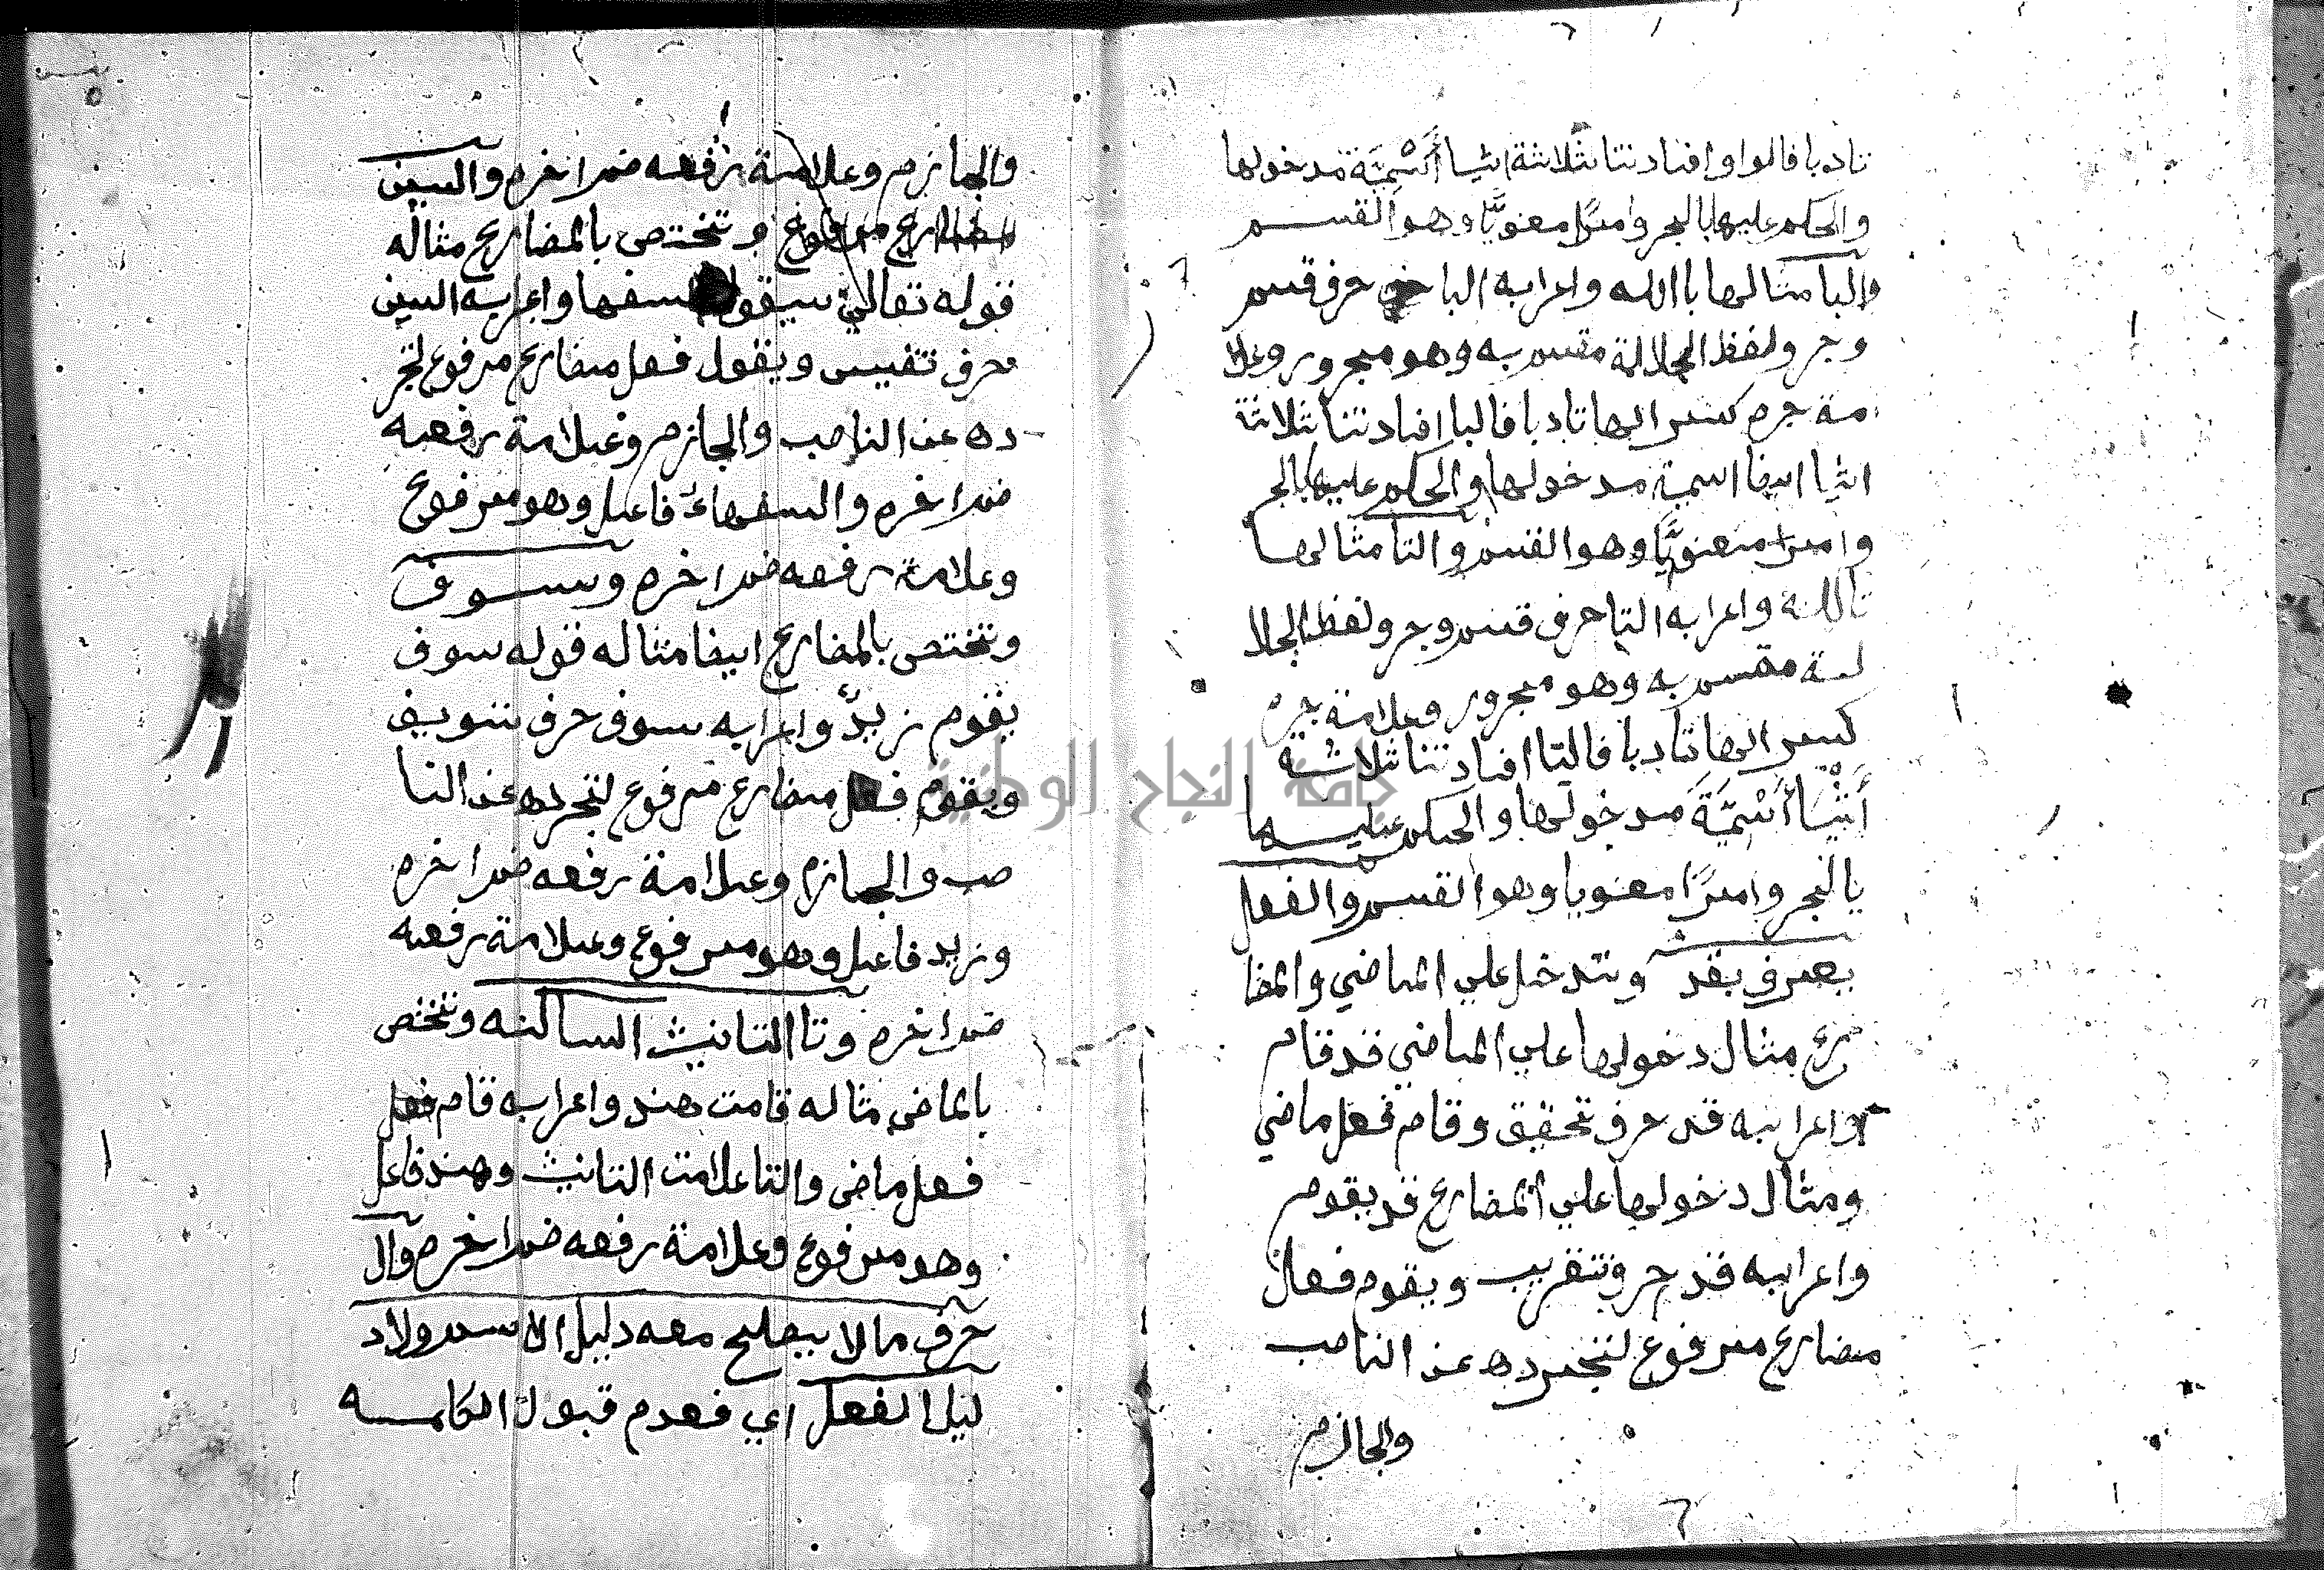 تادبا فالواو افادتنا ثلاثة اشيا أَسْمِيَّة مدخولها
والحكم عليها بالجر وامرًا معنويًّا وهو القسم
والبا مثالها باالله واعرابه البا حرف قسم
وجر ولفظ الجلالة مقسم به وهو مجرور وعلا
مة جره كسر الها تادبا فالبا افادتنا ثلاثة
اشيا ايضا اسمية مدخولها والحكم عليها بالجر
وامرا معنويًّا وهو القسم والتا مثالها
تالله واعرابه التا حرف قسم وجر ولفظ الجلا
لة مقسم به وهو مجرور وعلامة جره
كسر الها تادبا فالتا افادتنا ثلاثة
أَشْيَا أَسْمِيَّةَ مدخولها والحكم عليها
بالجر وامرًا معنويا وهو القسم والفعل
يعرف بقد وتدخل علي الماضي والمضا
رع مثال دخولها علي الماضي قد قام
واعرابه قد حرف تحقيق وقام فعل ماضي
ومثال دخولها علي المضارع قد يقوم
واعرابه قد حرف تقريب ويقوم فعل
مضارع مرفوع لتجرده عن الناصب
والجازم
والجازم وعلامة رفعه ضم اخره والسين
وتختص بالمضارع مثاله
قوله تعالي سيقول السفها واعرابه السين
حرف تنفيس ويقول فعل مضارع مرفوع لتجر
ده عن الناصب والجازم وعلامة رفعه
ضم اخره والسفهاء فاعل وهو مرفوع
وعلامة رفعه ضم اخره وسوف
وتختص بالمضارع ايضا مثاله قوله سوف
يقوم زيدٌ واعرابه سوف حرف تسويف
ويقوم فعل مضارع مرفوع لتجرده عن النا
صب والجازم وعلامة رفعه ضم اخره
وزيد فاعل وهو مرفوع وعلامة رفعه
ضم اخره وتا التانيث الساكنه وتختص
بالماضي مثاله قامت هند واعرابه قام فعل
فعل ماضي والتا علامت التانيث وهند فاعل
وهو مرفوع وعلامة رفعه ضم اخره وال
حرف ما لا يصلح معه دليل الاسم ولا د
ليل الفعل اي فعدم قبول الكلمه
جامعة النجاح الوطنية